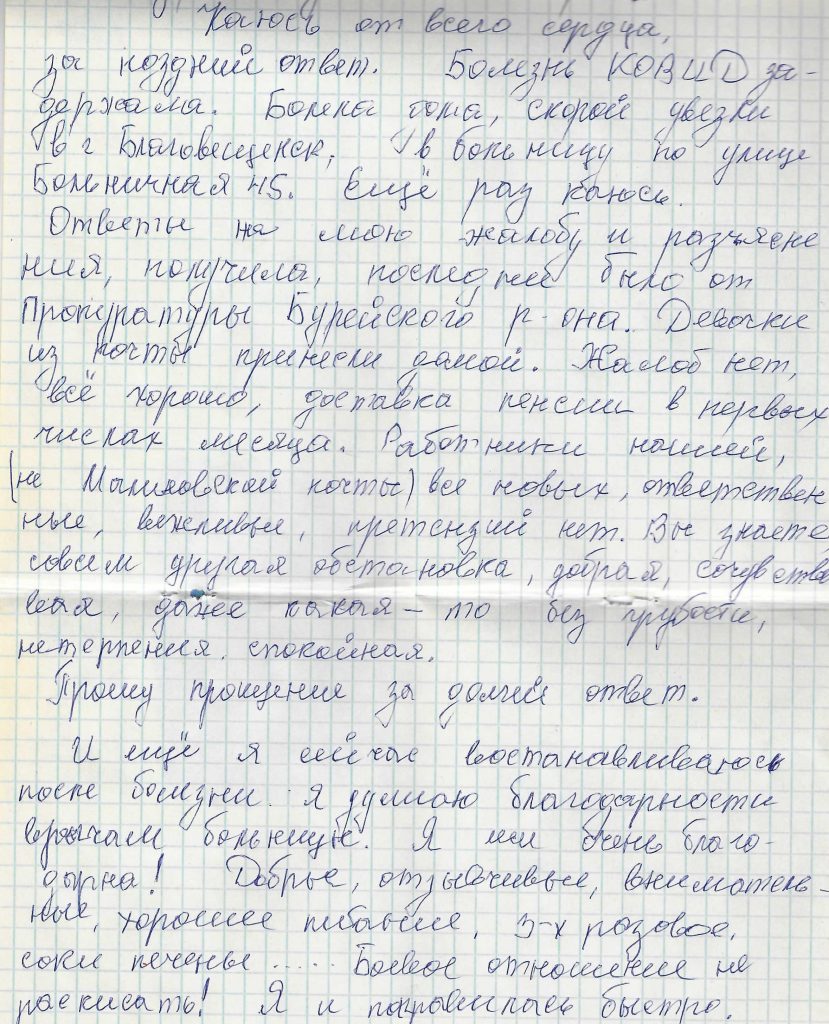 Каюсь от всего сердца,
за поздний ответ. Болезнь КОВИД за-
держала. Болела дома, скорой увезли
в г Благовещенск, в больницу по улице
Больничная 45. Ещё раз каюсь.
Ответы на мою жалобу и разъясне
ния, получила, последнее было от
Прокуратуры Бурейского р-она. Девочки
из почты принесли домой. Жалоб нет,
всё хорошо, доставка пенсии в первых
числах месяца. Работники нашей,
(не Малиновской почты) все новых, ответствен
ные, вежливые, претензий нет. Вы знаете,
совсем другая обстановка, добрая, сочувство
вая, даже какая-то без грубости,
нетерпения. спокойная.
Прошу прощение за долгий ответ.
И ещё я сейчас востанавливаюсь
после болезни. Я думаю благодарности
врачам больницы. Я им очень благо-
дырна! Добрые, отзывчивые, вниматель-
ные, хорошее питание, 5-х розовое,
соки печенье ..... Боевое отношение не
раскисать! Я и поправилась быстро.